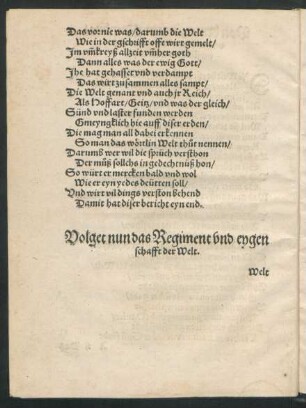 Das vor nie was/darumb die Welt
Wie in der gschrifft offt wirt gemelt/
Im vm̃kreyß allzeit vm̃her goth
Dann alles was der ewig Gott/
Ihe hat gehasset vnd verdampt
Das wirt zusammen alles sampt/
Die Welt genant vnd auch jr Reich/
Als Hoffart/Geitz/vnd was der gleich/
Sünd vnd laster funden werden
Gmeyngklich hie auff diser erden/
Die mag man all dabei erkennen
So man das wörtlin Welt thůt nennen/
Darumb wer wil die sprüch verston
Der můß sollichs in gedechtnuß hon/
So würt er mercken bald vnd wol
Wie er eyn yedes deütten soll/
Vnd wirt vil dings verston behend
Damit hat diser bericht eyn end.
Volget nun das Regiment vnd eygen
schafft der Welt.
Welt